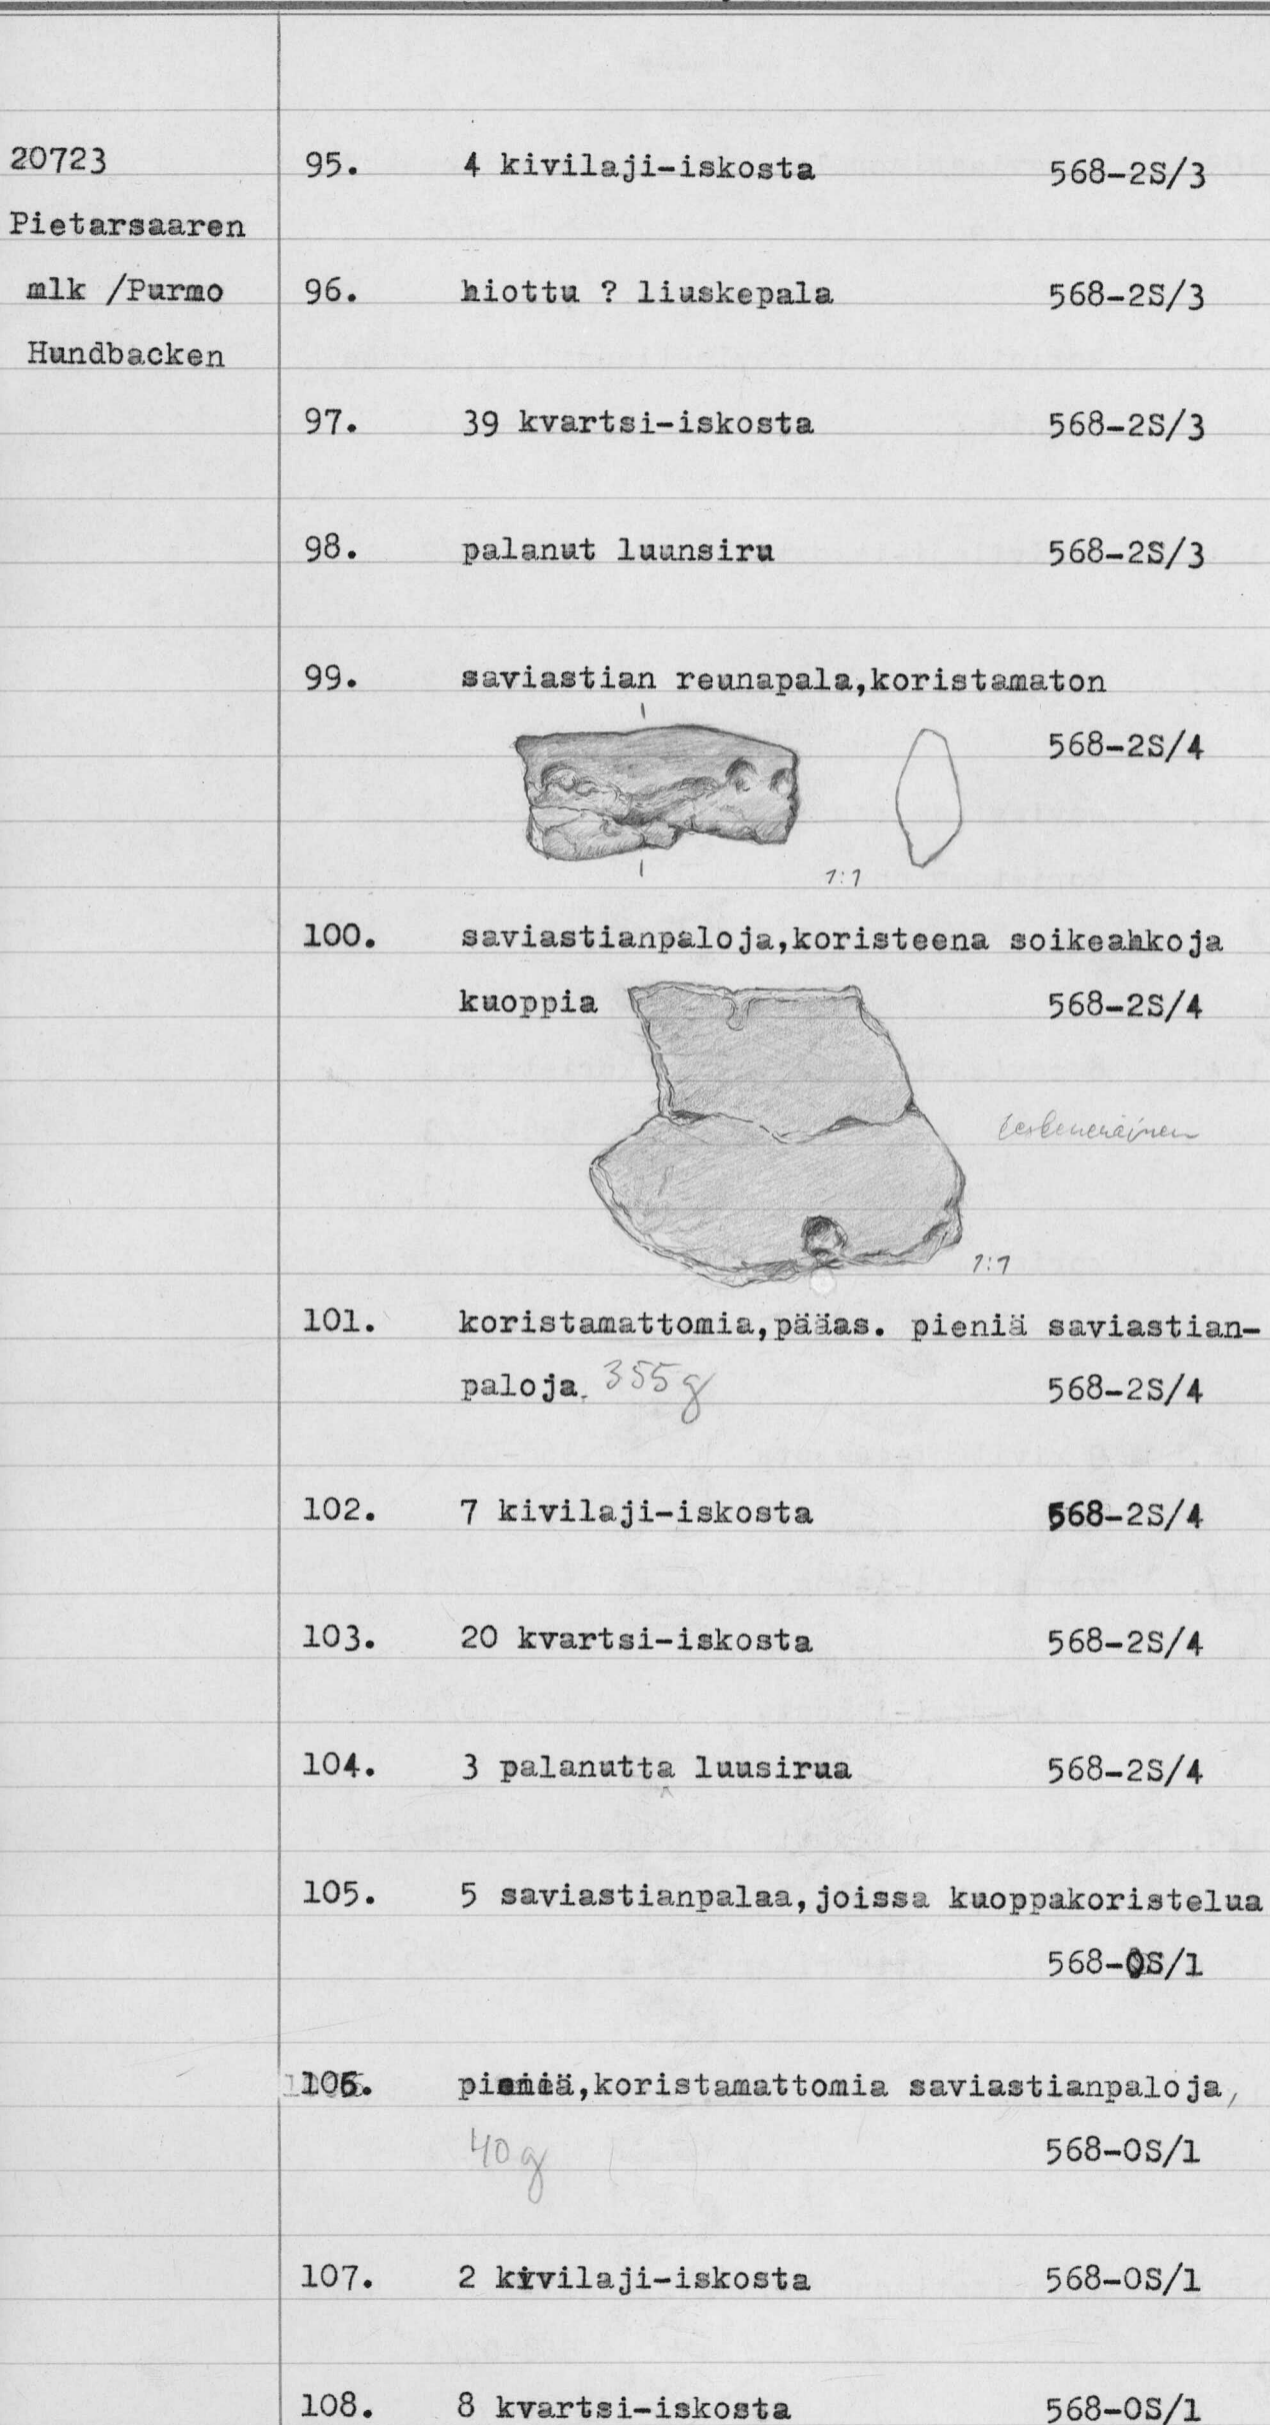 20723
Pietarsaaren
mlk /Purmo
Hundbacken
95. 4 kivilaji-iskosta 568-2S/3
96. hiottu ? liuskepala 568-2S/3
97. 39 kvartsi-iskosta 568-2S/3
98. palanut luunsiru 568-2S/3
99. saviastian reunapala,koristamaton
568-2S/4
1:1
100. saviastianpaloja,koristeena soikeahkoja
kuoppia 568-2S/4
keskeneräinen
1:1
101. koristamattomia,pääas. pieniä saviastian-
paloja. 355 g 568-2S/4
102. 7 kivilaji-iskosta 568-2S/4
103. 20 kvartsi-iskosta 568-2S/4
104. 3 palanutta luusirua 568-2S/4
105. 5 saviastianpalaa,joissa kuoppakoristelua
568-0S/1
106. pieniä,koristamattomia saviastianpaloja,
40 g 568-0S/1
107. 2 kivilaji-iskosta 568-0S/1
108. 8 kvartsi-iskosta 568-0S/1